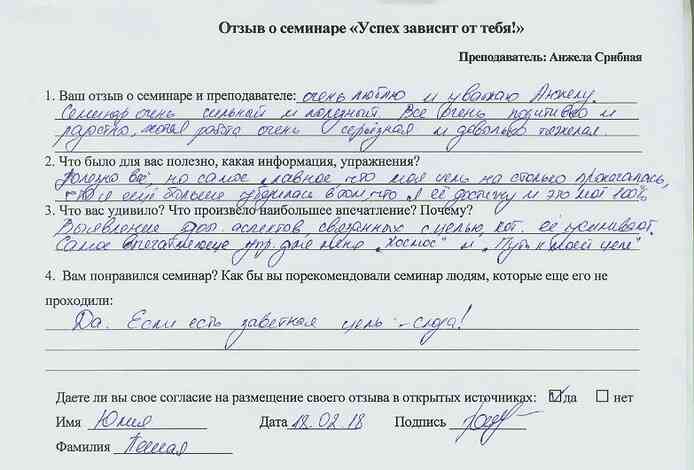 Отзыв о семинаре «Успех зависит от тебя!»
Преподаватель: Анжела Срибная
1. Ваш отзыв о семинаре и преподавателе: очень люблю и уважаю Анжелу.
Семинар очень сильный и полезный. Все очень позитивно и
радостно, хотя работа очень серьёзная и довольно тяжелая.
2. Что было для вас полезно, какая информация, упражнения?
Полезно всё, но самое главное что моя цель на столько прокачалась,
что я ещё больше убедилась в том что я её достигну и это мой 100%
3. Что вас удивило? Что произвело наибольшее впечатление? Почему?
Выявление доп. аспектов, связанных с целью, кот. её усиливают.
Самое впечатляющее упр. для меня „Космос" и „Путь к моей цели"
4. Вам понравился семинар? Как бы вы порекомендовали семинар людям, которые еще его не
проходили:
Да. Если есть заветная цель - сюда!
Даете ли вы свое согласие на размещение своего отзыва в открытых источниках: да нет
Имя Юлия Дата 18.02.18 Подпись
Фамилия